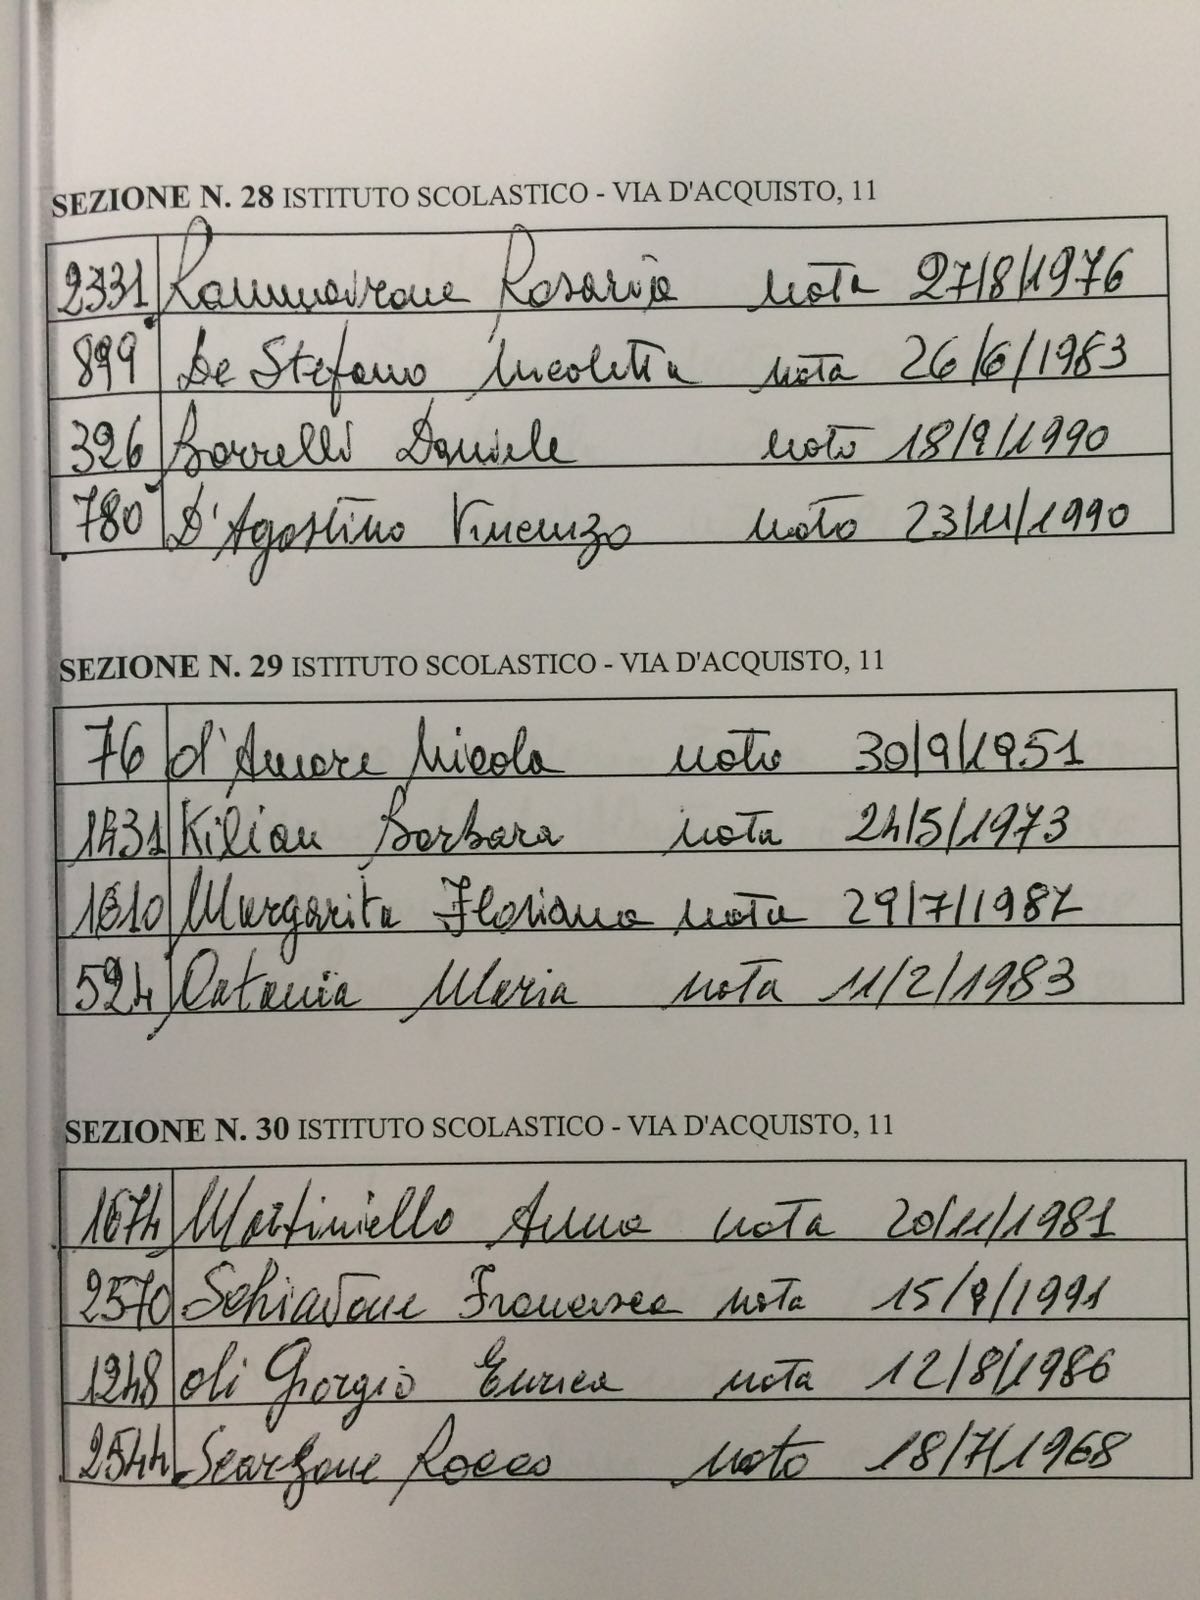 SEZIONE N. 28 ISTITUTO SCOLASTICO - VIA D'ACQUISTO, 11
2331 Rosaria nata 27/8/1976
899 De Stefano Nicoletta nata 26/6/1983
326 Borrelli Daniele nato 18/9/1990
780 D'Agostino Vincenzo nato 23/11/1990
SEZIONE N. 29 ISTITUTO SCOLASTICO - VIA D'ACQUISTO, 11
76 d'Amore Nicola nato 30/9/1951
1431 Kilian Barbara nata 24/5/1973
1610 Margarita Floriana nata 29/7/1987
524 Catania Maria nata 11/2/1983
SEZIONE N. 30 ISTITUTO SCOLASTICO - VIA D'ACQUISTO, 11
1674 Martiniello Anna nata 20/11/1981
2570 Schiavone Francesca nata 15/9/1991
1248 di Giorgio Enrica nata 12/8/1986
2544 Scarzone Rocco nato 18/7/1968